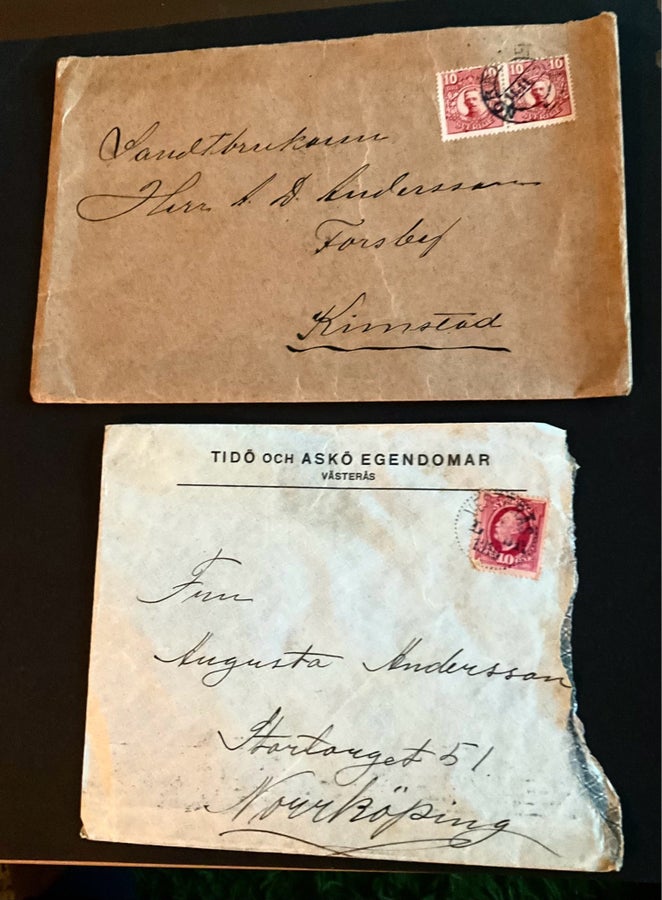 10 10 10
SVERIGE
Landtbrukaren
Herr A. D. Andersson
Forsby
Kimstad
TIDÖ OCH ASKÖ EGENDOMAR
VÄSTERÅS
10
Fru
Augusta Andersson
Stortorget 51
Norrköping